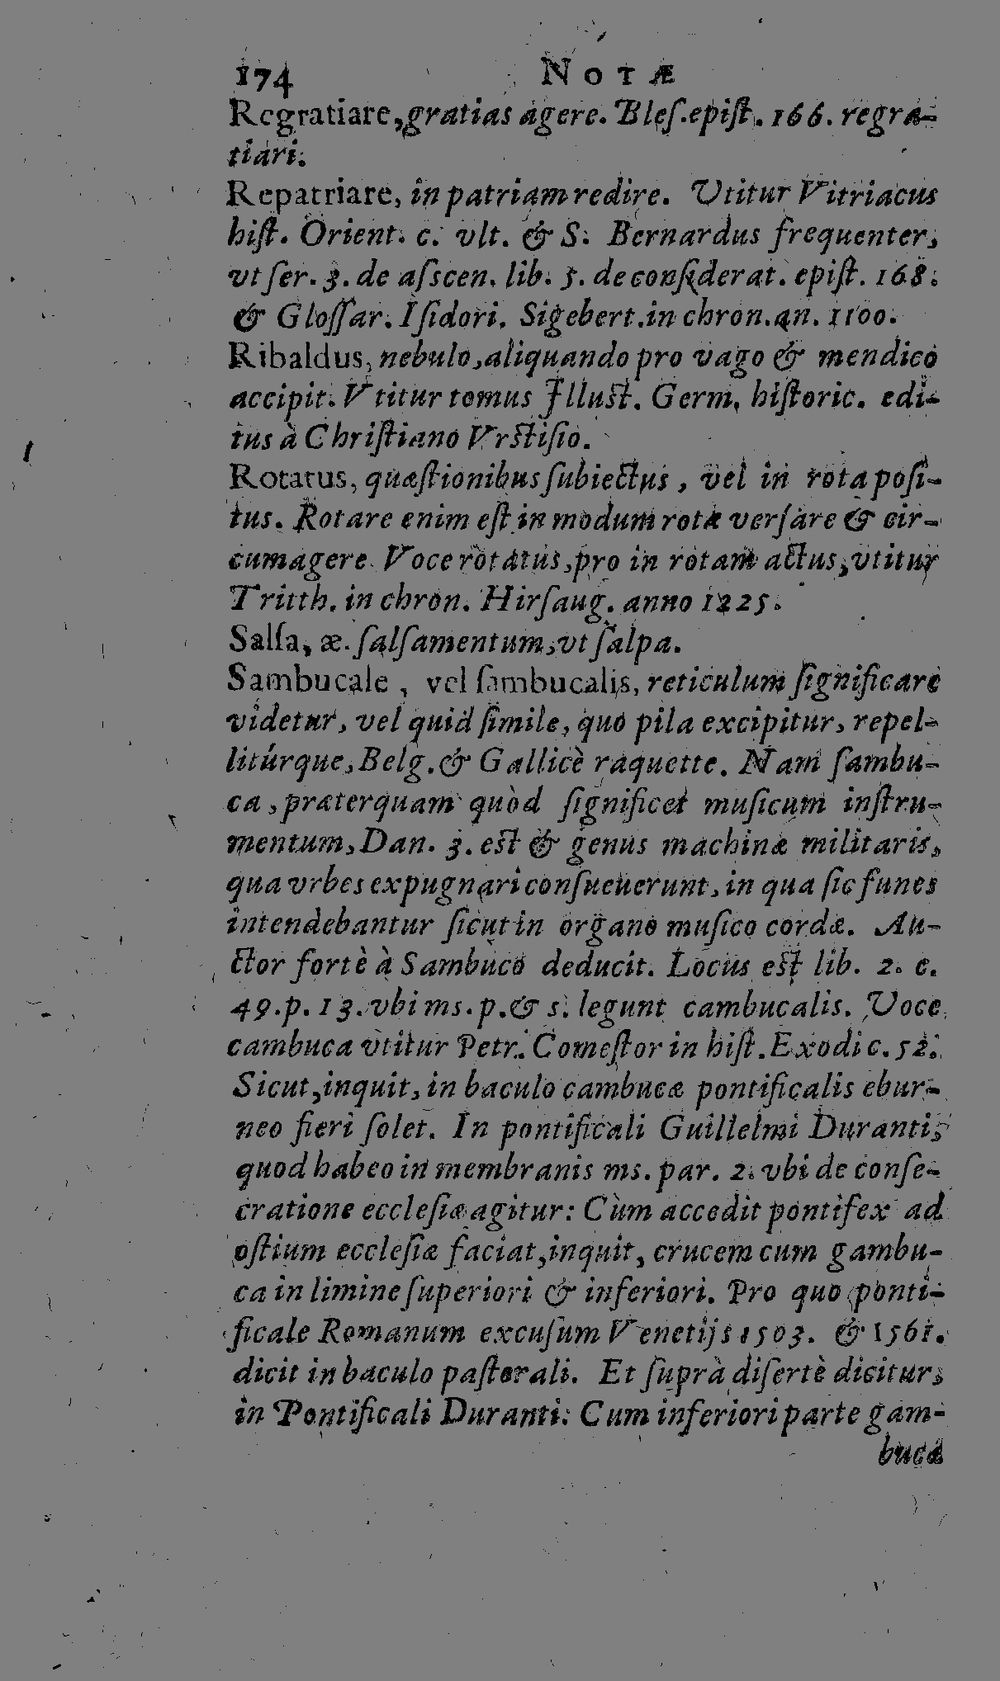 174 NOTÆ
Regratiare, gratias agere. Bleſ. epiſt. 166. regra-
tiari.
Repatriare, in patriam redire. Vtitur Vitriacus
hiſt. Orient. c. vlt. & S. Bernardus frequenter,
vt ſer. 3. de aſscen. lib. 5. de conſiderat. epiſt. 168.
& Gloſſar. Iſidori. Sigebert. in chron. an. 1100.
Ribaldus, nebulo, aliquando pro vago & mendico
accipit. Vtitur tomus Illuſt. Germ. hiſtoric. edi-
tus à Chriſtiano Vrſtiſio.
Rotatus, quæſtionibus ſubiectus, vel in rota poſi-
tus. Rotare enim eſt in modum rotæ verſare & cir-
cumagere. Voce rotatus, pro in rotam actus, vtitur
Tritth. in chron. Hirſaug. anno 1225.
Salſa, æ. ſalſamentum, vt ſalpa.
Sambucale, vel ſambucalis, reticulum ſignificare
videtur, vel quid ſimile, quo pila excipitur, repel-
litúrque, Belg. & Gallicè raquette. Nam ſambu-
ca, præterquam quòd ſignificet muſicum inſtru-
mentum, Dan. 3. eſt & genus machinæ militaris,
qua vrbes expugnari conſueuerunt, in qua ſic funes
intendebantur ſicut in organo muſico cordæ. Au-
ctor fortè à Sambuco deducit. Locus eſt lib. 2. c.
49. p. 13. vbi ms. p. & s. legunt cambucalis. Voce
cambuca vtitur Petr. Comeſtor in hiſt. Exodi c. 52.
Sicut, inquit, in baculo cambucæ pontificalis ebur-
neo fieri ſolet. In pontificali Guillelmi Duranti,
quod habeo in membranis ms. par. 2. vbi de conſe-
cratione eccleſiæ agitur: Cùm accedit pontifex ad
oſtium eccleſiæ faciat, inquit, crucem cum gambu-
ca in limine ſuperiori & inferiori. Pro quo ponti-
ficale Romanum excuſum Venetijs 1503. & 1561.
dicit in baculo paſtorali. Et ſuprà diſertè dicitur,
in Pontificali Duranti: Cum inferiori parte gam-
buca